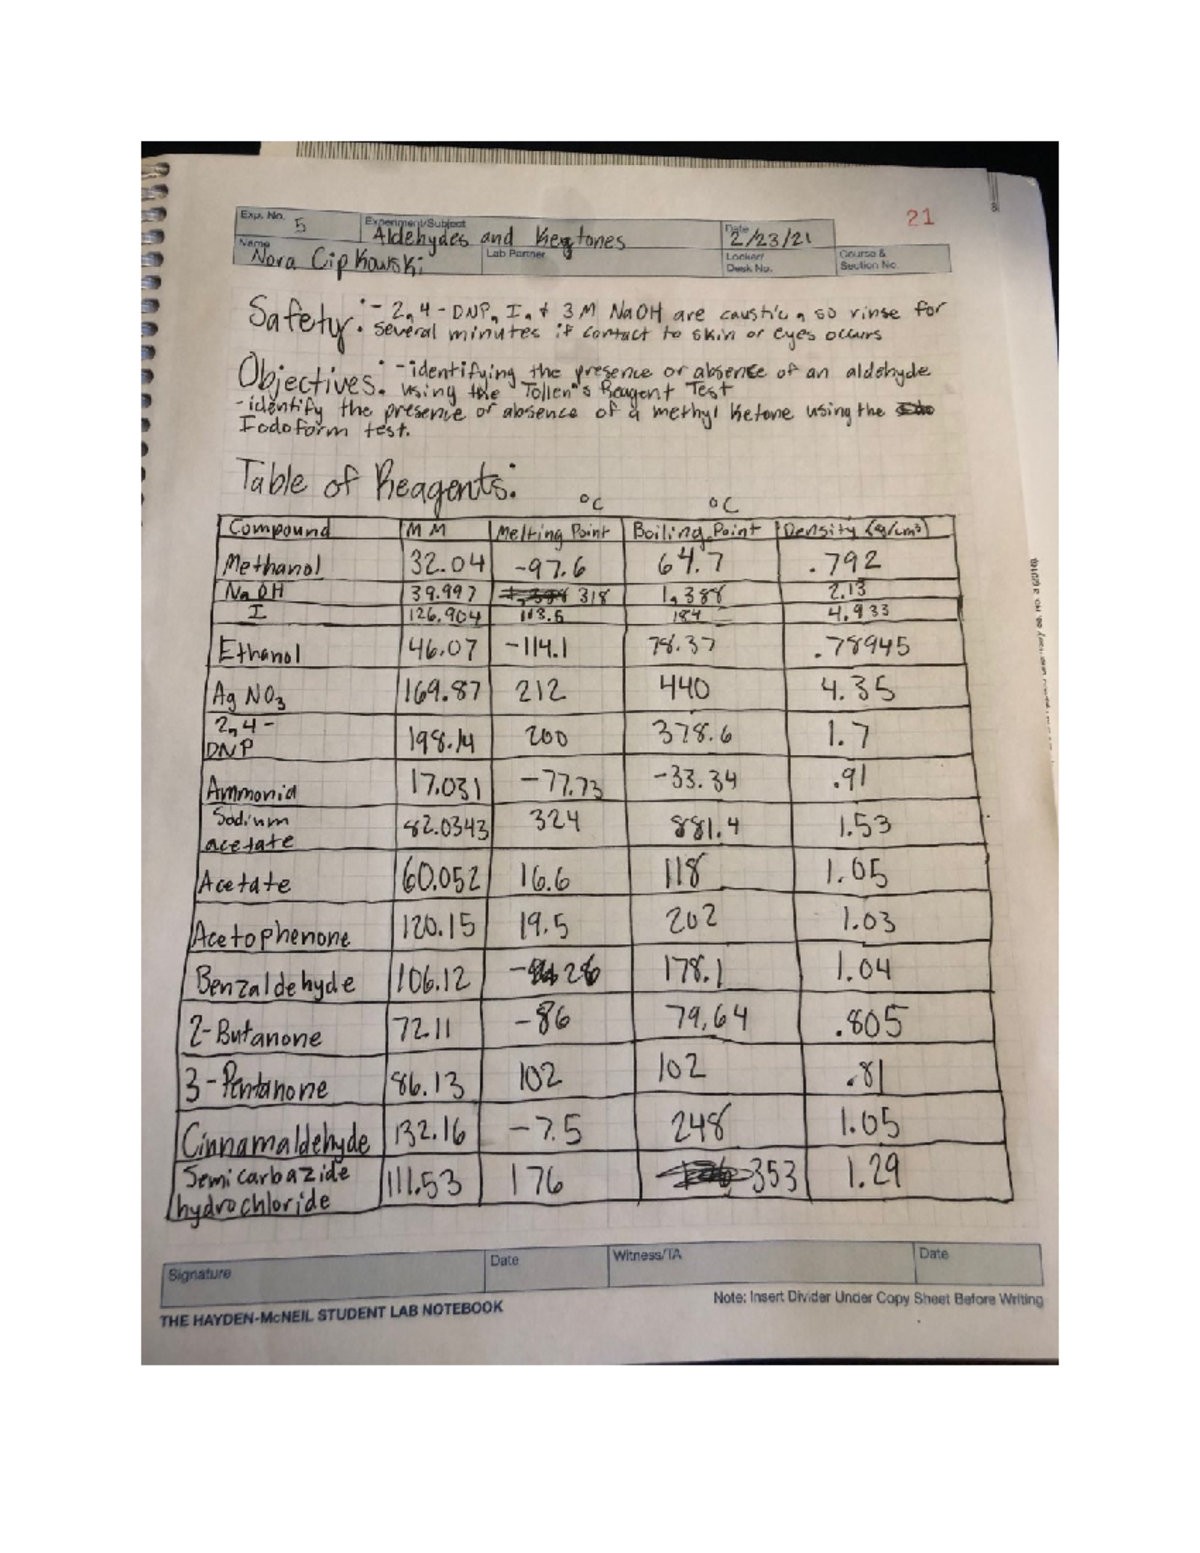 21
Exp. No. 5 Experiment/Subject Aldehydes and Ketones Date 2/23/21
Name Nora Cipkowski Lab Partner Locker/Desk No. Course & Section No.
Safety: - 2,4-DNP, I, + 3 M NaOH are caustic, so rinse for
several minutes if contact to skin or eyes occurs
Objectives: - identifying the presence or absence of an aldehyde
using the Tollen's Reagent Test
- identify the presence or absence of a methyl ketone using the
Iodoform test.
Table of Reagents:
°C °C
Compound MM Melting Point Boiling Point Density (g/cm³)
Methanol 32.04 -97.6 64.7 .792
NaOH 39.997 318 1,388 2.13
I 126.904 113.5 184 4.933
Ethanol 46.07 -114.1 78.37 .78945
AgNO3 169.87 212 440 4.35
2,4-DNP 198.14 200 378.6 1.7
Ammonia 17.031 -77.73 -33.34 .91
Sodium acetate 82.0343 324 881.4 1.53
Acetate 60.052 16.6 118 1.05
Acetophenone 120.15 19.5 202 1.03
Benzaldehyde 106.12 -26 178.1 1.04
2-Butanone 72.11 -86 79.64 .805
3-Pentanone 86.13 102 102 .81
Cinnamaldehyde 132.16 -7.5 248 1.05
Semicarbazide hydrochloride 111.53 176 353 1.29
Signature Date Witness/TA Date
THE HAYDEN-McNEIL STUDENT LAB NOTEBOOK Note: Insert Divider Under Copy Sheet Before Writing